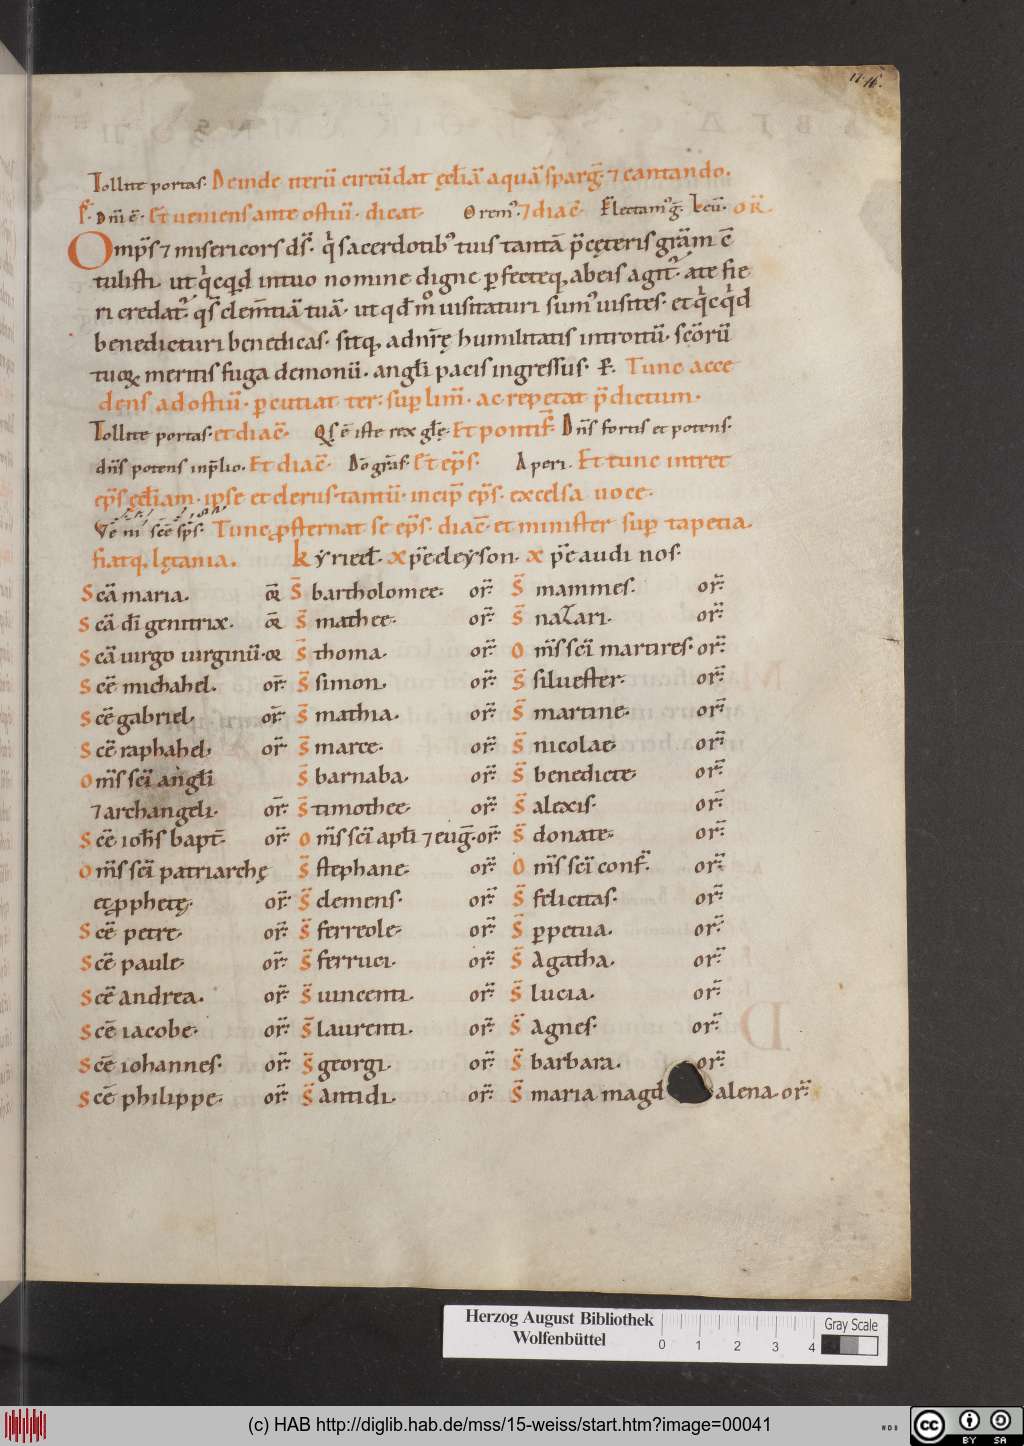 Tollite portas· Deinde iterū circūdat ęcłiā aquā sparḡ· ⁊ cantando.
Dn̄i ē· Et veniens ante ostiū· dicat· Orem᷒· ⁊ diac̄· Flectam᷒ ḡ· Leū· oR̄
Omp̄s ⁊ misericors ds̄· qͥ sacerdotibꝰ tuis tantā p̄ ceteris grām ē
tulisti· ut qͥcqͥd intuo nomine digne ꝑfecteq, abeis agit᷒· ate fie
ri credat᷒· qs̄ clem̄tiā tuā· ut qd̄ mͦ uisitaturi sum᷒ uisites· et qͥcqͥd
benedicturi benedicas· sitq, adnr̄ę humilitatis introitū· sc̄orū
tuoꝝ meritis fuga demonū· angłi pacis ingressus· P. Tunc acce
dens ad ostiū· ꝑcutiat ter: suꝑ lim̄· ac repetat p̄dictum·
Tollite portas· et diac̄· Qs̄ ē iste rex glę· Et pontif̄· Dn̄s fortis et potens·
dn̄s potens inp̄lio· Et diac̄· Dō grās· Et ep̄s· Aperi· Et tunc intret
ep̄s ęcłiam· ipse et clerus· tantū· incip̄ ep̄s· excelsa uoce·
Ve ni sc̄e sp̄s· Tunc ꝓsternat se ep̄s· diac̄· et minister suꝑ tapetia·
fiatq, lętania. kẏrieeł· xp̄e eleẏson· xp̄e audi nos·
Scā maria· or̄ S̄ bartholomee· or̄: S̄ mammes· or̄:
Scā dī genitrix· or̄ S̄ mathee· or̄: S̄ nazari· or̄:
Scā uirgo uirginū· or S̄ thoma· or̄: Om̄s sc̄i martires· or̄:
Scē michahel· or̄: S̄ simon· or̄: S̄ siluester· or̄:
Scē gabriel· or̄: S̄ mathia· or̄: S̄ martine· or̄:
Scē raphahel· or̄ S̄ marce· or̄: S̄ nicolae· or̄:
Om̄s sc̄i angłi S̄ barnaba· or̄: S̄ benedicte· or̄:
⁊ archangeli· or̄: S̄ timothee· or̄: S̄ alexis· or̄:
Scē ioħs bapt̄· or̄: Om̄s sc̄i apłi ⁊ eug̅· or̄: S̄ donate· or̄:
Om̄s sc̄i patriarchę S̄ stephane· or̄: Om̄s sc̄i conf̄· or̄:
et ꝓphetę· or̄: S̄ clemens· or̄: S̄ felicitas· or̄:
Scē petre· or̄: S̄ ferreole· or̄: S̄ ꝑpetua· or̄:
Scē paule· or̄: S̄ ferruci· or̄: S̄ Agatha· or̄:
Scē andrea· or̄: S̄ uincenti· or̄: S̄ lucia· or̄:
Scē iacobe· or̄: S̄ laurenti· or̄: S̄ Agnes· or̄:
Scē iohannes· or̄: S̄ georgi· or̄: S̄ barbara· or̄:
Scē philippe· or̄: S̄ antidi· or̄: S̄ maria magdalena· or̄:
Herzog August Bibliothek
Wolfenbüttel
0 1 2 3 4
Gray Scale
(c) HAB http://diglib.hab.de/mss/15-weiss/start.htm?image=00041
BY SA